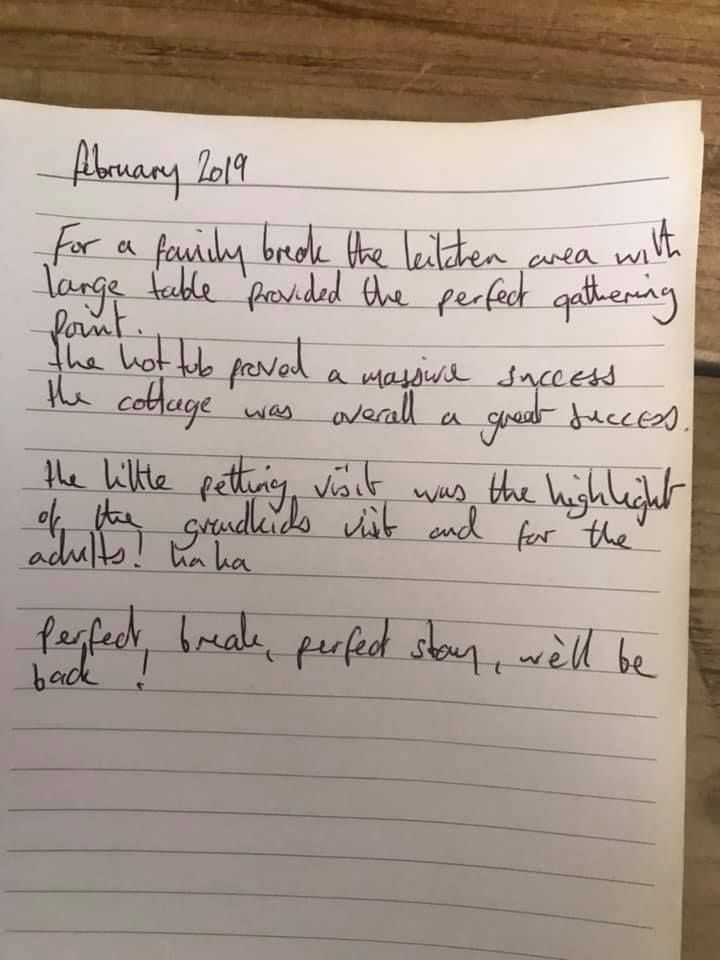 february 2019
For a family break the kitchen area with
large table provided the perfect gathering
point.
the hot tub proved a massive success
the cottage was overall a great success.
the little petting visit was the highlight
of the grandkids visit and for the
adults! ha ha
perfect break, perfect stay, we'll be
back !